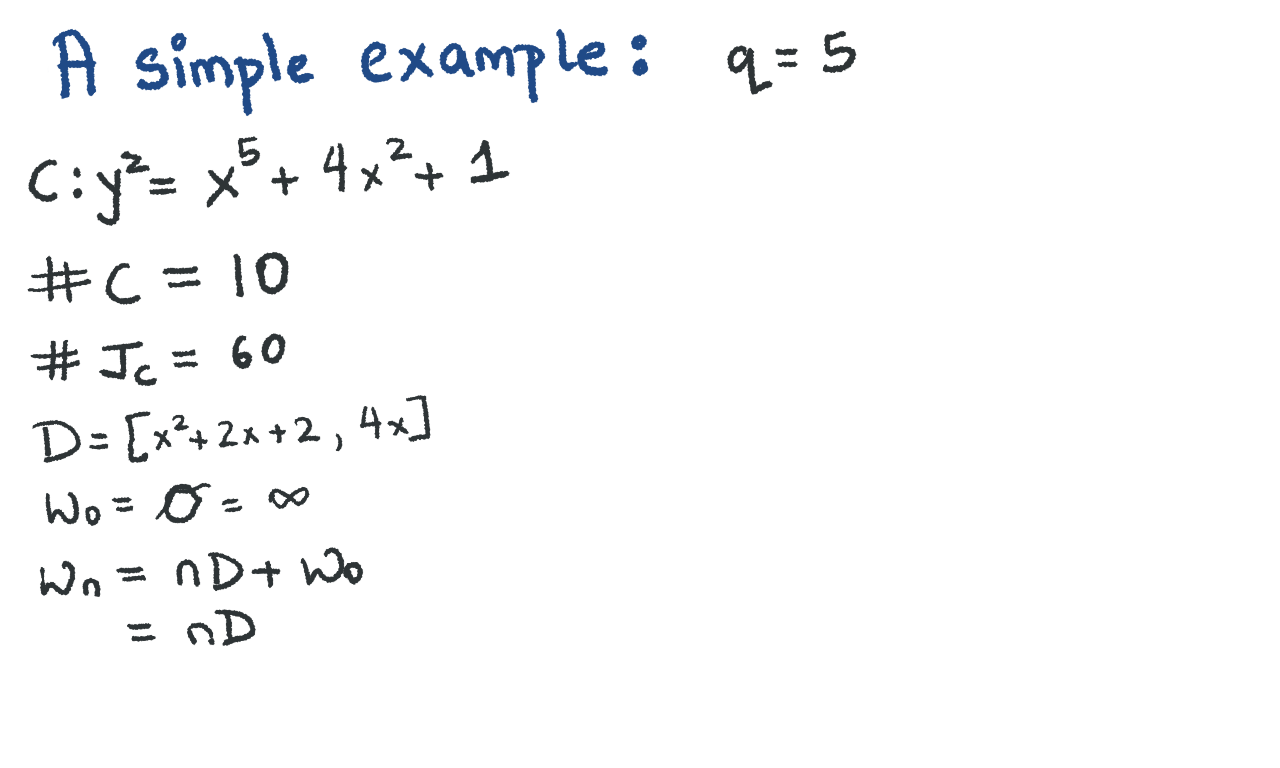 A simple example: q = 5
C: y² = x⁵ + 4x² + 1
# C = 10
# J_C = 60
D = [x² + 2x + 2, 4x]
W₀ = O = ∞
Wₙ = nD + W₀
= nD